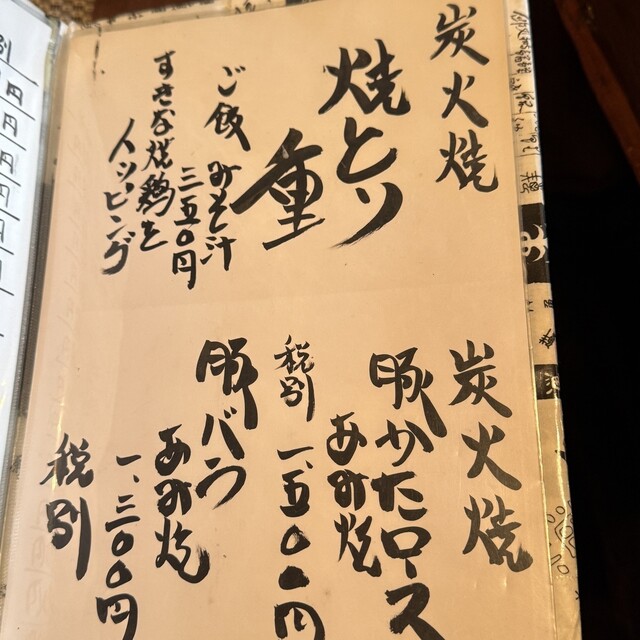 炭火焼
焼とり
重
ご飯 みそ汁
三五〇円
すきな焼鶏を
トッピング
炭火焼
豚かたロース
あみ焼
税別 一、五〇〇円
豚バラ
あみ焼
一、三〇〇円
税別